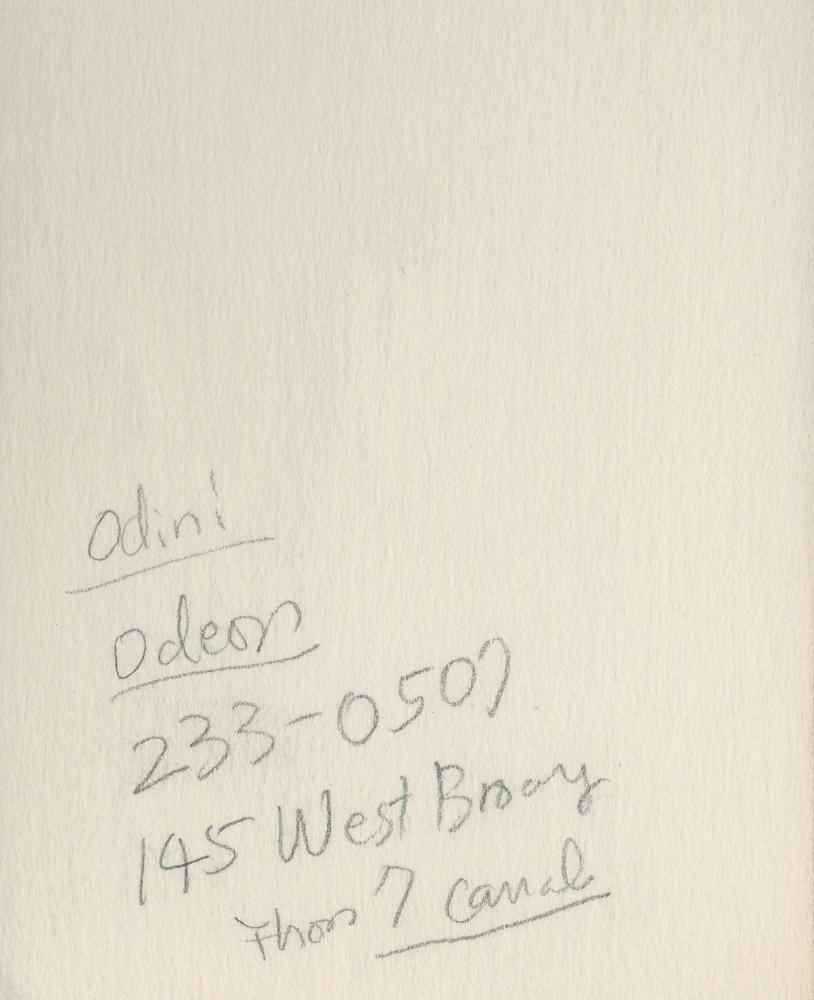 Odini
Odeon
233-0507
145 West Broay
Thom 7 canal